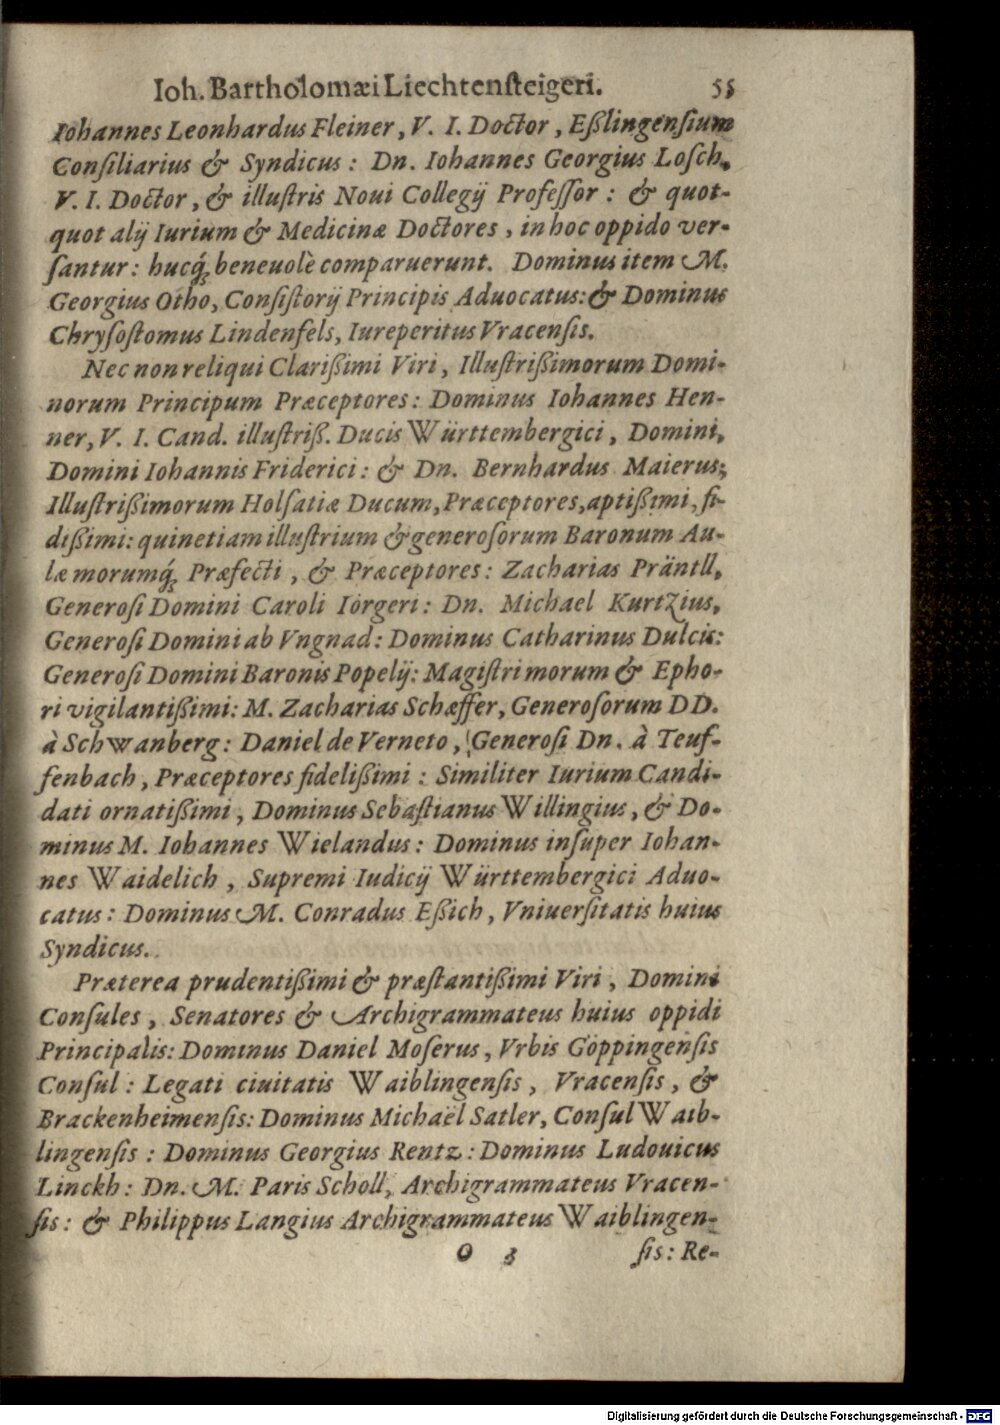 Ioh. Bartholomæi Liechtenſteigeri. 55
Iohannes Leonhardus Fleiner, V. I. Doctor, Eßlingenſium
Conſiliarius & Syndicus: Dn. Iohannes Georgius Loſch,
V. I. Doctor, & illuſtris Noui Collegij Profeſſor: & quot-
quot alij Iurium & Medicinæ Doctores, in hoc oppido ver-
ſantur: hucq́; beneuolè comparuerunt. Dominus item M.
Georgius Otho, Conſiſtorij Principis Aduocatus: & Dominus
Chryſoſtomus Lindenfels, Iureperitus Vracenſis.
Nec non reliqui Clarißimi Viri, Illuſtrißimorum Domi-
norum Principum Præceptores: Dominus Iohannes Hen-
ner, V. I. Cand. illuſtriß. Ducis Württembergici, Domini,
Domini Iohannis Friderici: & Dn. Bernhardus Maierus;
Illuſtrißimorum Holſatiæ Ducum, Præceptores, aptißimi, fi-
dißimi: quinetiam illuſtrium & generoſorum Baronum Au-
læ morumq́; Præfecti, & Præceptores: Zacharias Präntll,
Generoſi Domini Caroli Iörgeri: Dn. Michael Kurtzius,
Generoſi Domini ab Vngnad: Dominus Catharinus Dulcis:
Generoſi Domini Baronis Popelij: Magiſtri morum & Epho-
ri vigilantißimi: M. Zacharias Schæffer, Generoſorum DD.
à Schwanberg: Daniel de Verneto, Generoſi Dn. à Teuf-
fenbach, Præceptores fidelißimi: Similiter Iurium Candi-
dati ornatißimi, Dominus Sebaſtianus Willingius, & Do-
minus M. Iohannes Wielandus: Dominus inſuper Iohan-
nes Waidelich, Supremi Iudicij Württembergici Aduo-
catus: Dominus M. Conradus Eßich, Vniuerſitatis huius
Syndicus.
Præterea prudentißimi & præſtantißimi Viri, Domini
Conſules, Senatores & Archigrammateus huius oppidi
Principalis: Dominus Daniel Moſerus, Vrbis Göppingenſis
Conſul: Legati ciuitatis Waiblingenſis, Vracenſis, &
Brackenheimenſis: Dominus Michaël Satler, Conſul Waib-
lingenſis: Dominus Georgius Rentz: Dominus Ludouicus
Linckh: Dn. M. Paris Scholl, Archigrammateus Vracen-
ſis: & Philippus Langius Archigrammateus Waiblingen-
O 3 ſis: Re-
Digitalisierung gefördert durch die Deutsche Forschungsgemeinschaft - DFG